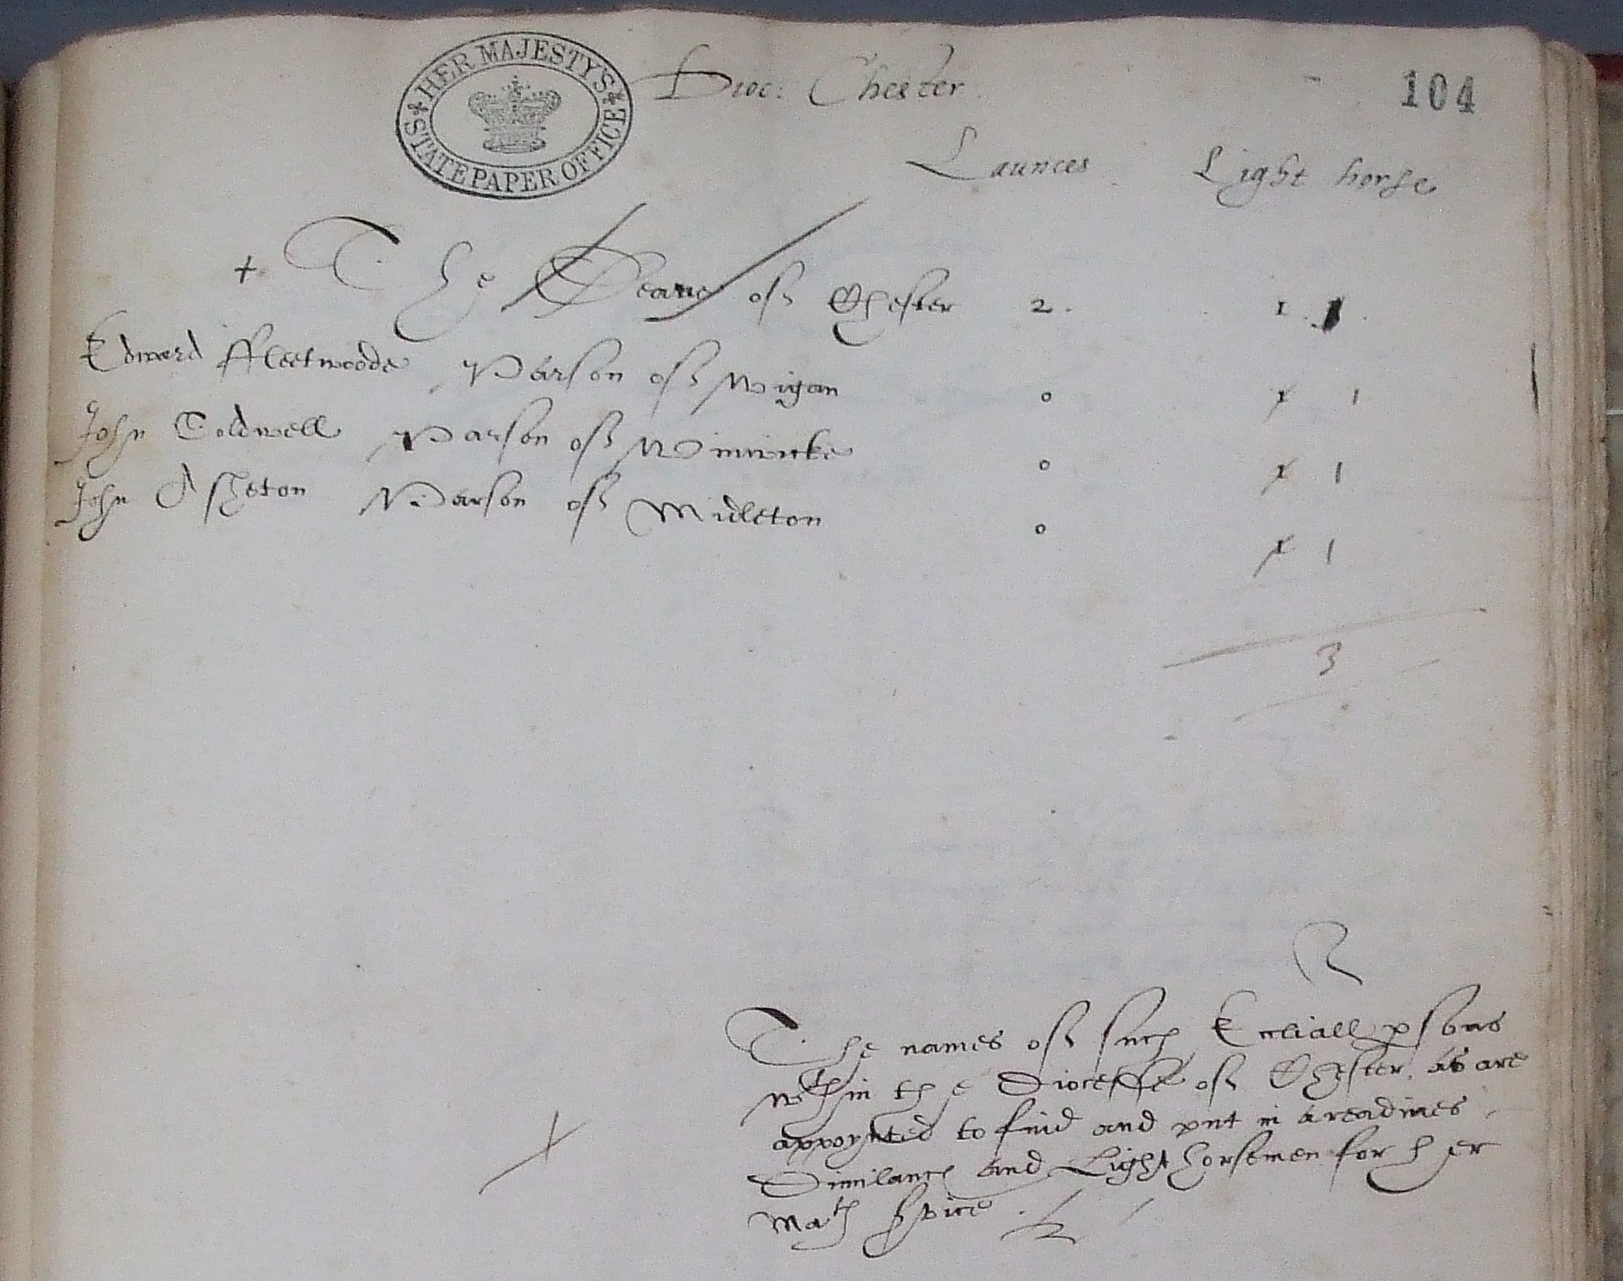 HER MAJESTY'S STATE PAPER OFFICE
Dioc: Chester
104
Launces Light horse
+ The Deane off Chester 2. 1
Edward ffleetwoode Parson off Wigan 0 1 1
John Coldwell Parson off Winwicke 0 1 1
John Assheton Parson off Midleton 0 1 1
3
The names off such Eccliall psons
wthin the Diocesse off Chester as are
appoynted to find and put in areadines
Dimilances and Light horsemen for her
Mats service